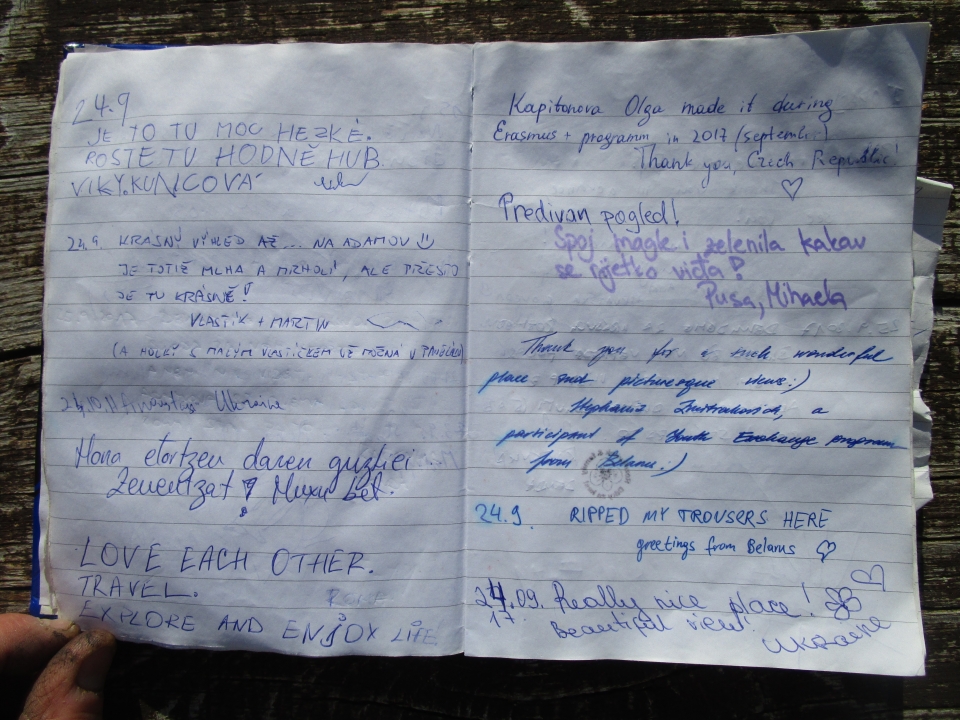 24.9
JE TO TU MOC HEZKÉ.
ROSTE TU HODNĚ HUB.
VIKY.KUNCOVÁ
24.9. KRÁSNÝ VÝHLED AŽ... NA ADAMOV
JE TOTIŽ MLHA A MRHOLÍ, ALE PŘESTO
JE TU KRÁSNĚ!
VLASTÍK + MARTIN
(A HOLKY S MALÝM VLASTÍČKEM UŽ MOŽNÁ V
Ukraine
Hona etortzen daren guztiei
Zeuentzat Muxu bat.
LOVE EACH OTHER.
TRAVEL.
EXPLORE AND ENJOY LIFE
Kapitonova Olga made it during
Erasmus + programm in 2017 (septemb.)
Thank you, Czech Republic!
Predivan pogled!
Spoj magle i zelenila kakav
se rijetko viđa!
Pusa, Mihaela
Thank you for a such wonderful
place and picturesque views:)
a
participant of Youth Exchange program
from Belarus:)
24.9. RIPPED MY TROUSERS HERE
greetings from Belarus
24.09. Really nice place!
17. beautiful view
Ukraine